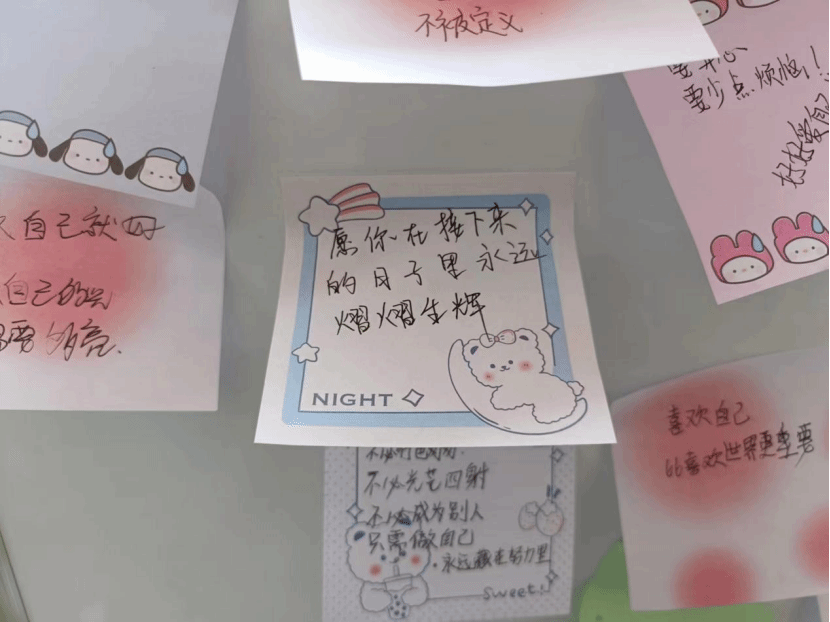 不被定义
要少点烦恼！
好好爱自己
自己就好
自己的
要多亮.
愿你在接下来
的日子里永远
熠熠生辉
NIGHT
喜欢自己
比喜欢世界更重要
不必光芒四射
不必成为别人
只需做自己
永远藏在努力里
sweet!